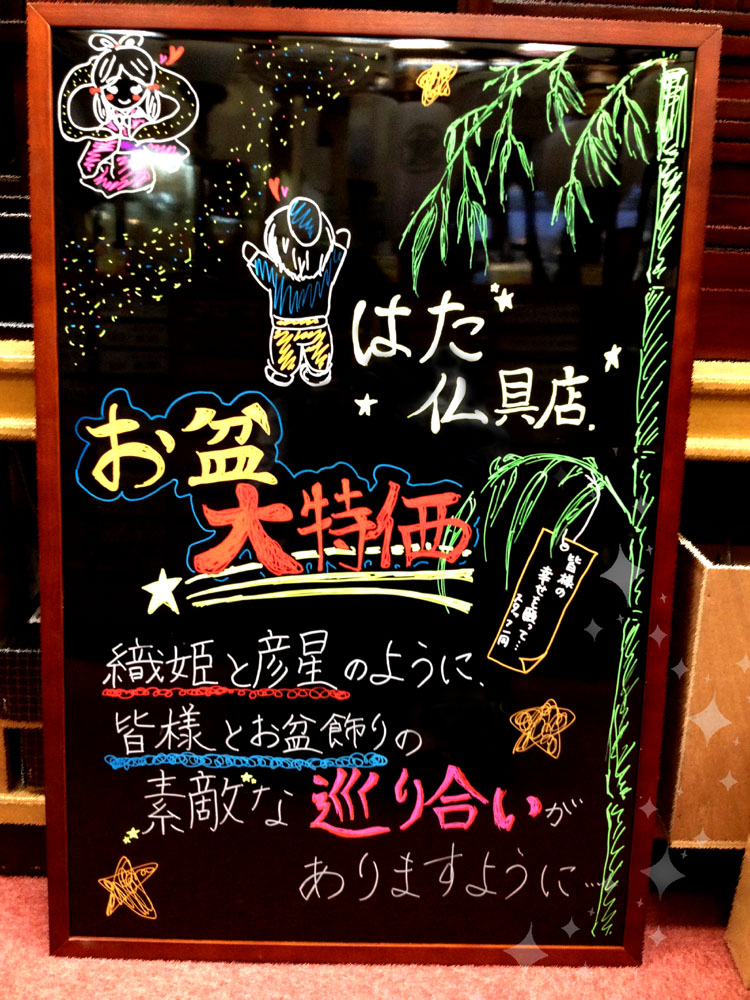 はた
仏具店.
お盆
大特価
皆様の
幸せを願って…
スタッフ一同
織姫と彦星のように、
皆様とお盆飾りの
素敵な巡り合いが
ありますように…